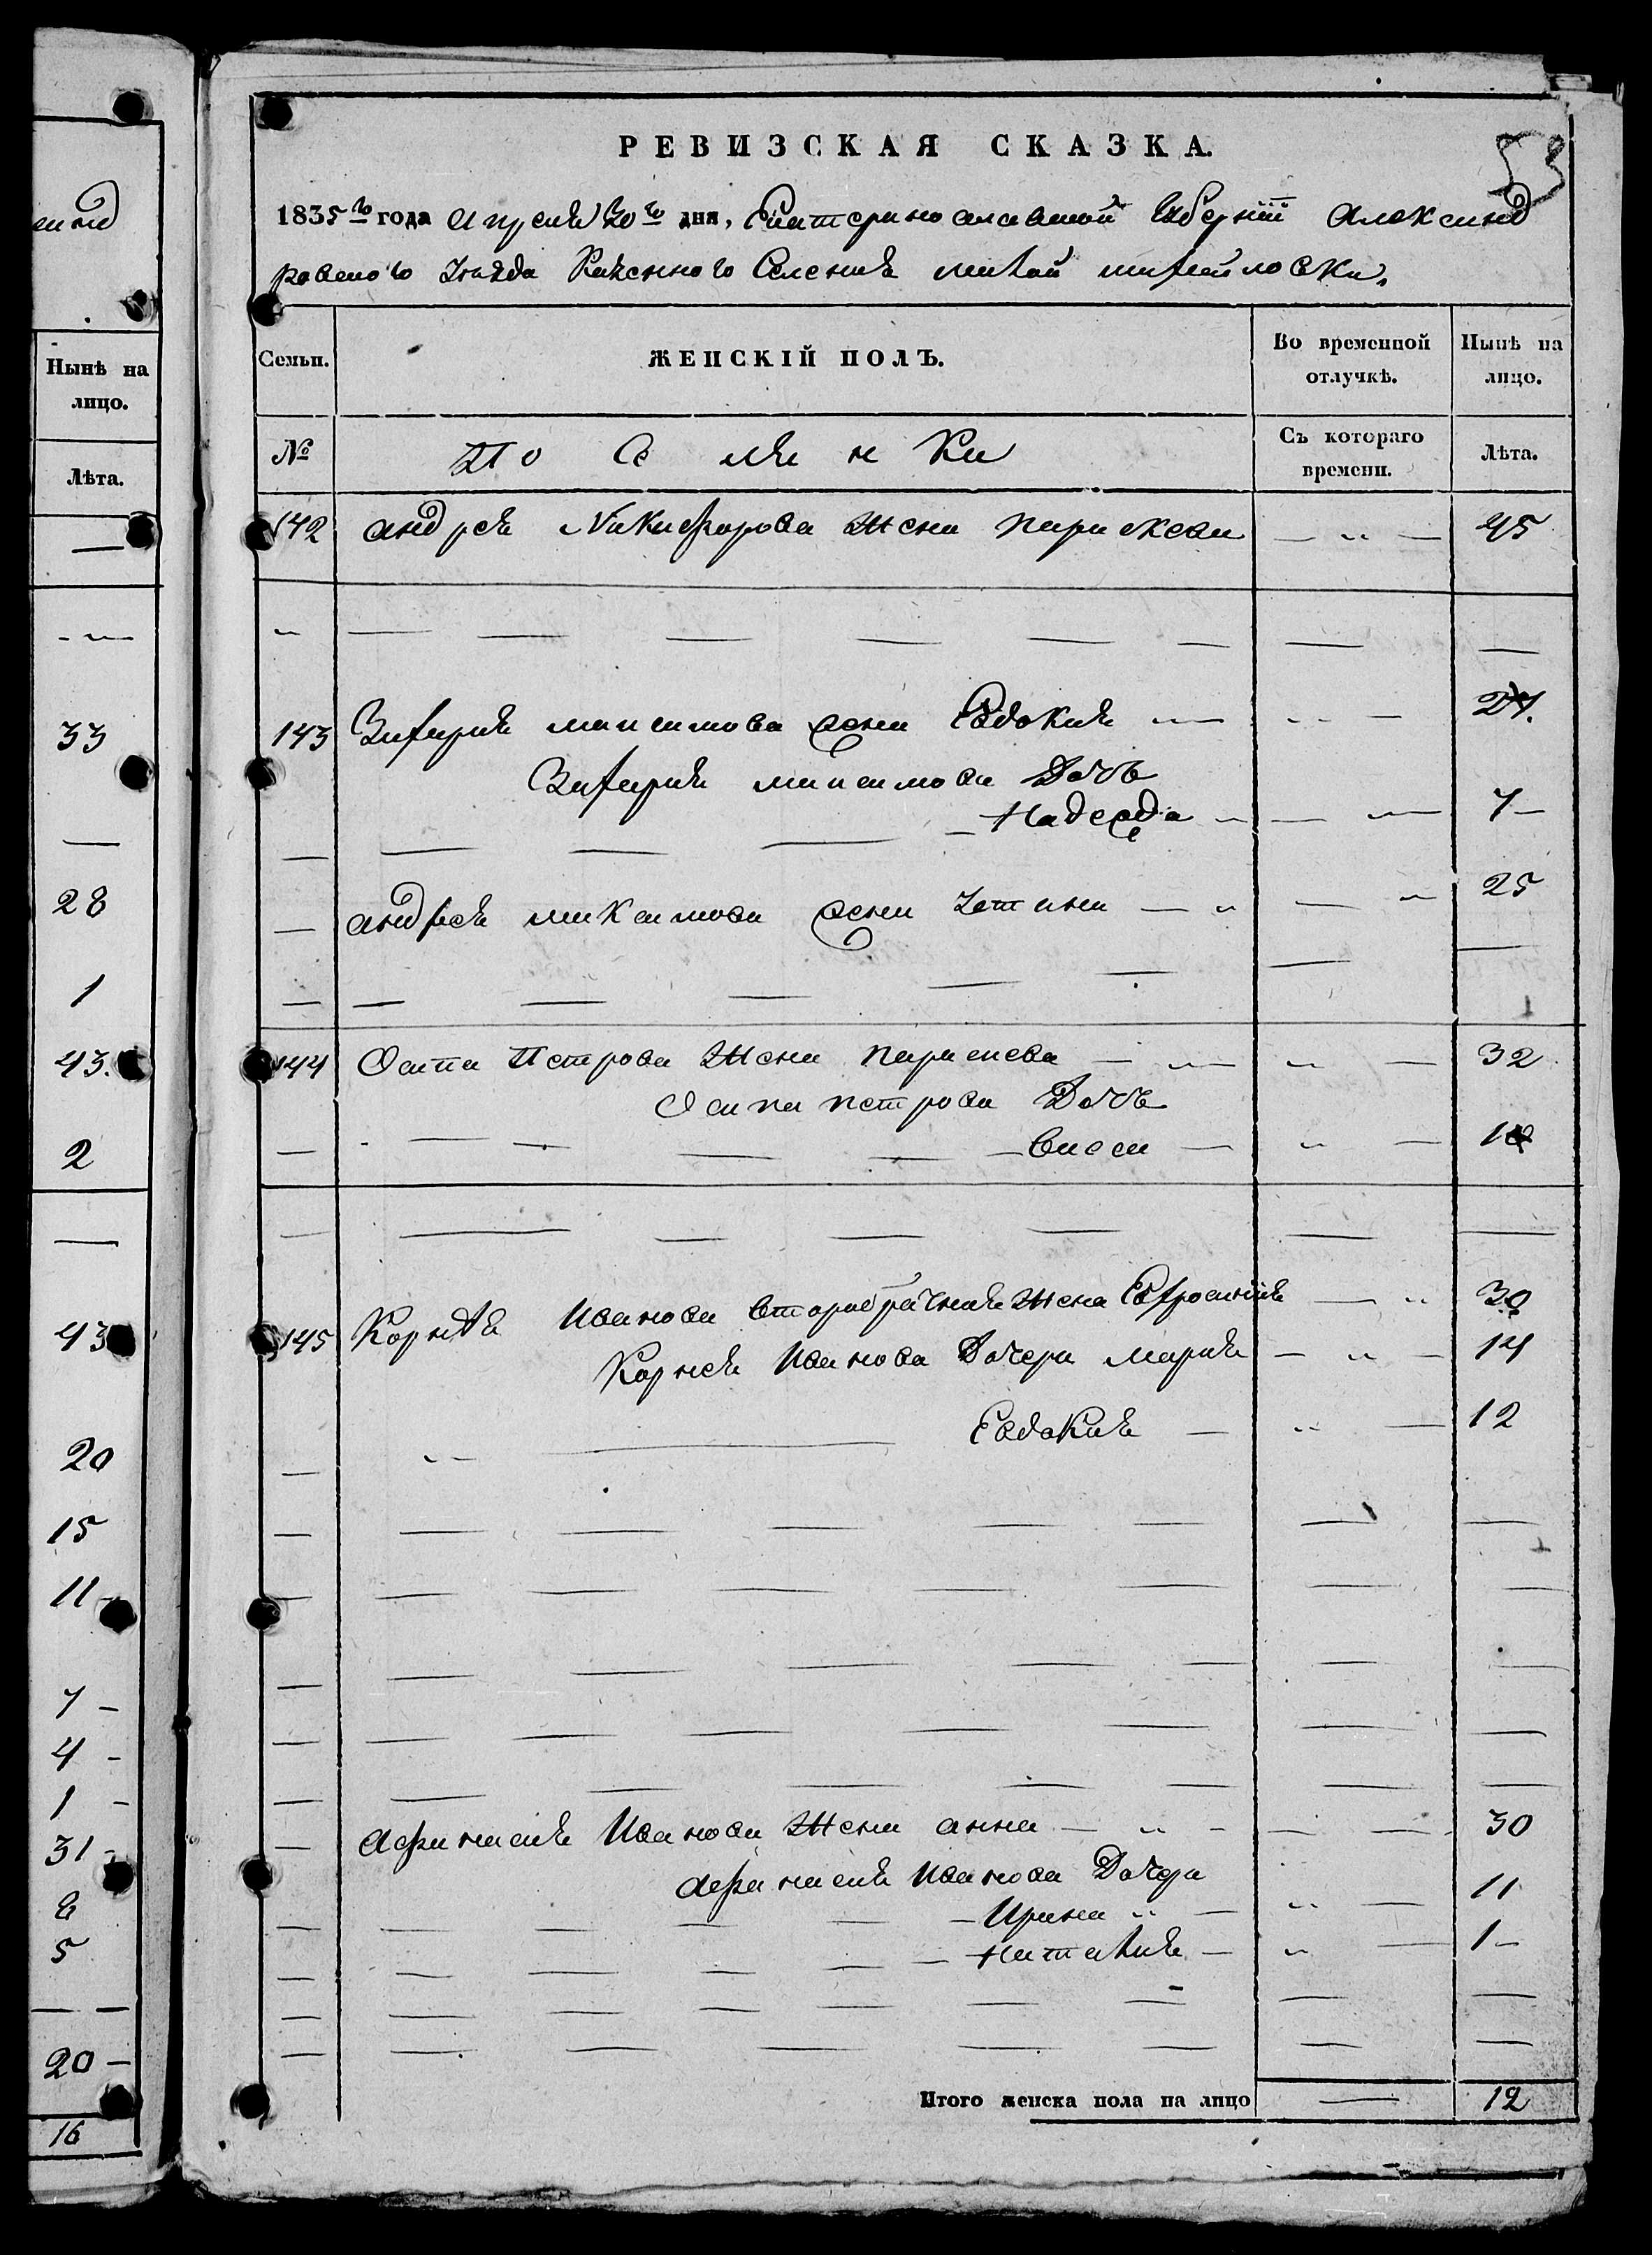 енод
Нынѣ на
лицо.
Лѣта.
—
33
—
28
1
43.
2
—
43
20
15
11
7 –
4 –
1 –
31 –
8
5
20 –
16
РЕВИЗСКАЯ СКАЗКА.
53
1835го года апреля 20го дня, Екатеринославской Губернiи Александ
ровского уезда Казенного Селения малой михайловки.
Семьи.
ЖЕНСКІЙ ПОЛЪ.
Во временной
отлучкѣ.
Нынѣ на
лицо.
№
Съ котораго
времени.
Лѣта.
142 андрея Никифорова жена параскева 45
143 Захария максимова жена Евдокия 27.
Захария максимова Дочь
Надежда 7
андрея максимова жена 25
144 Осипа Петрова жена параскева 32
Осипа петрова Дочь
10
145 Корнея Иванова второбрачная жена Евфросиния 30
Корнея Иванова Дочери мария 14
Евдокия 12
афанасия Иванова жена анна 30
афанасия Иванова Дочери
Ирина 11
наталия 1
Итого женска пола на лицо — 12